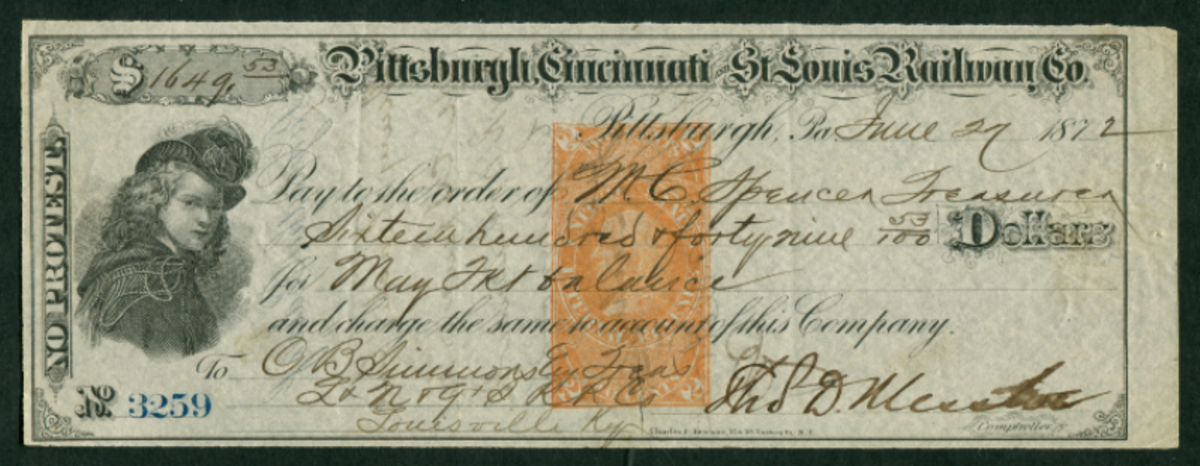 $ 1649.53
Pittsburgh, Cincinnati and St. Louis Railway Co.
Pittsburgh, Pa. June 27 1872
Pay to the order of M C Spencer Treasurer
Sixteen hundred & forty nine 53/100 Dollars
for May Tkt balance
and charge the same to account of this Company.
To O B Simmons Treas
Louisville Ky
Thos D. Messler
Comptroller
NO PROTEST.
No. 3259